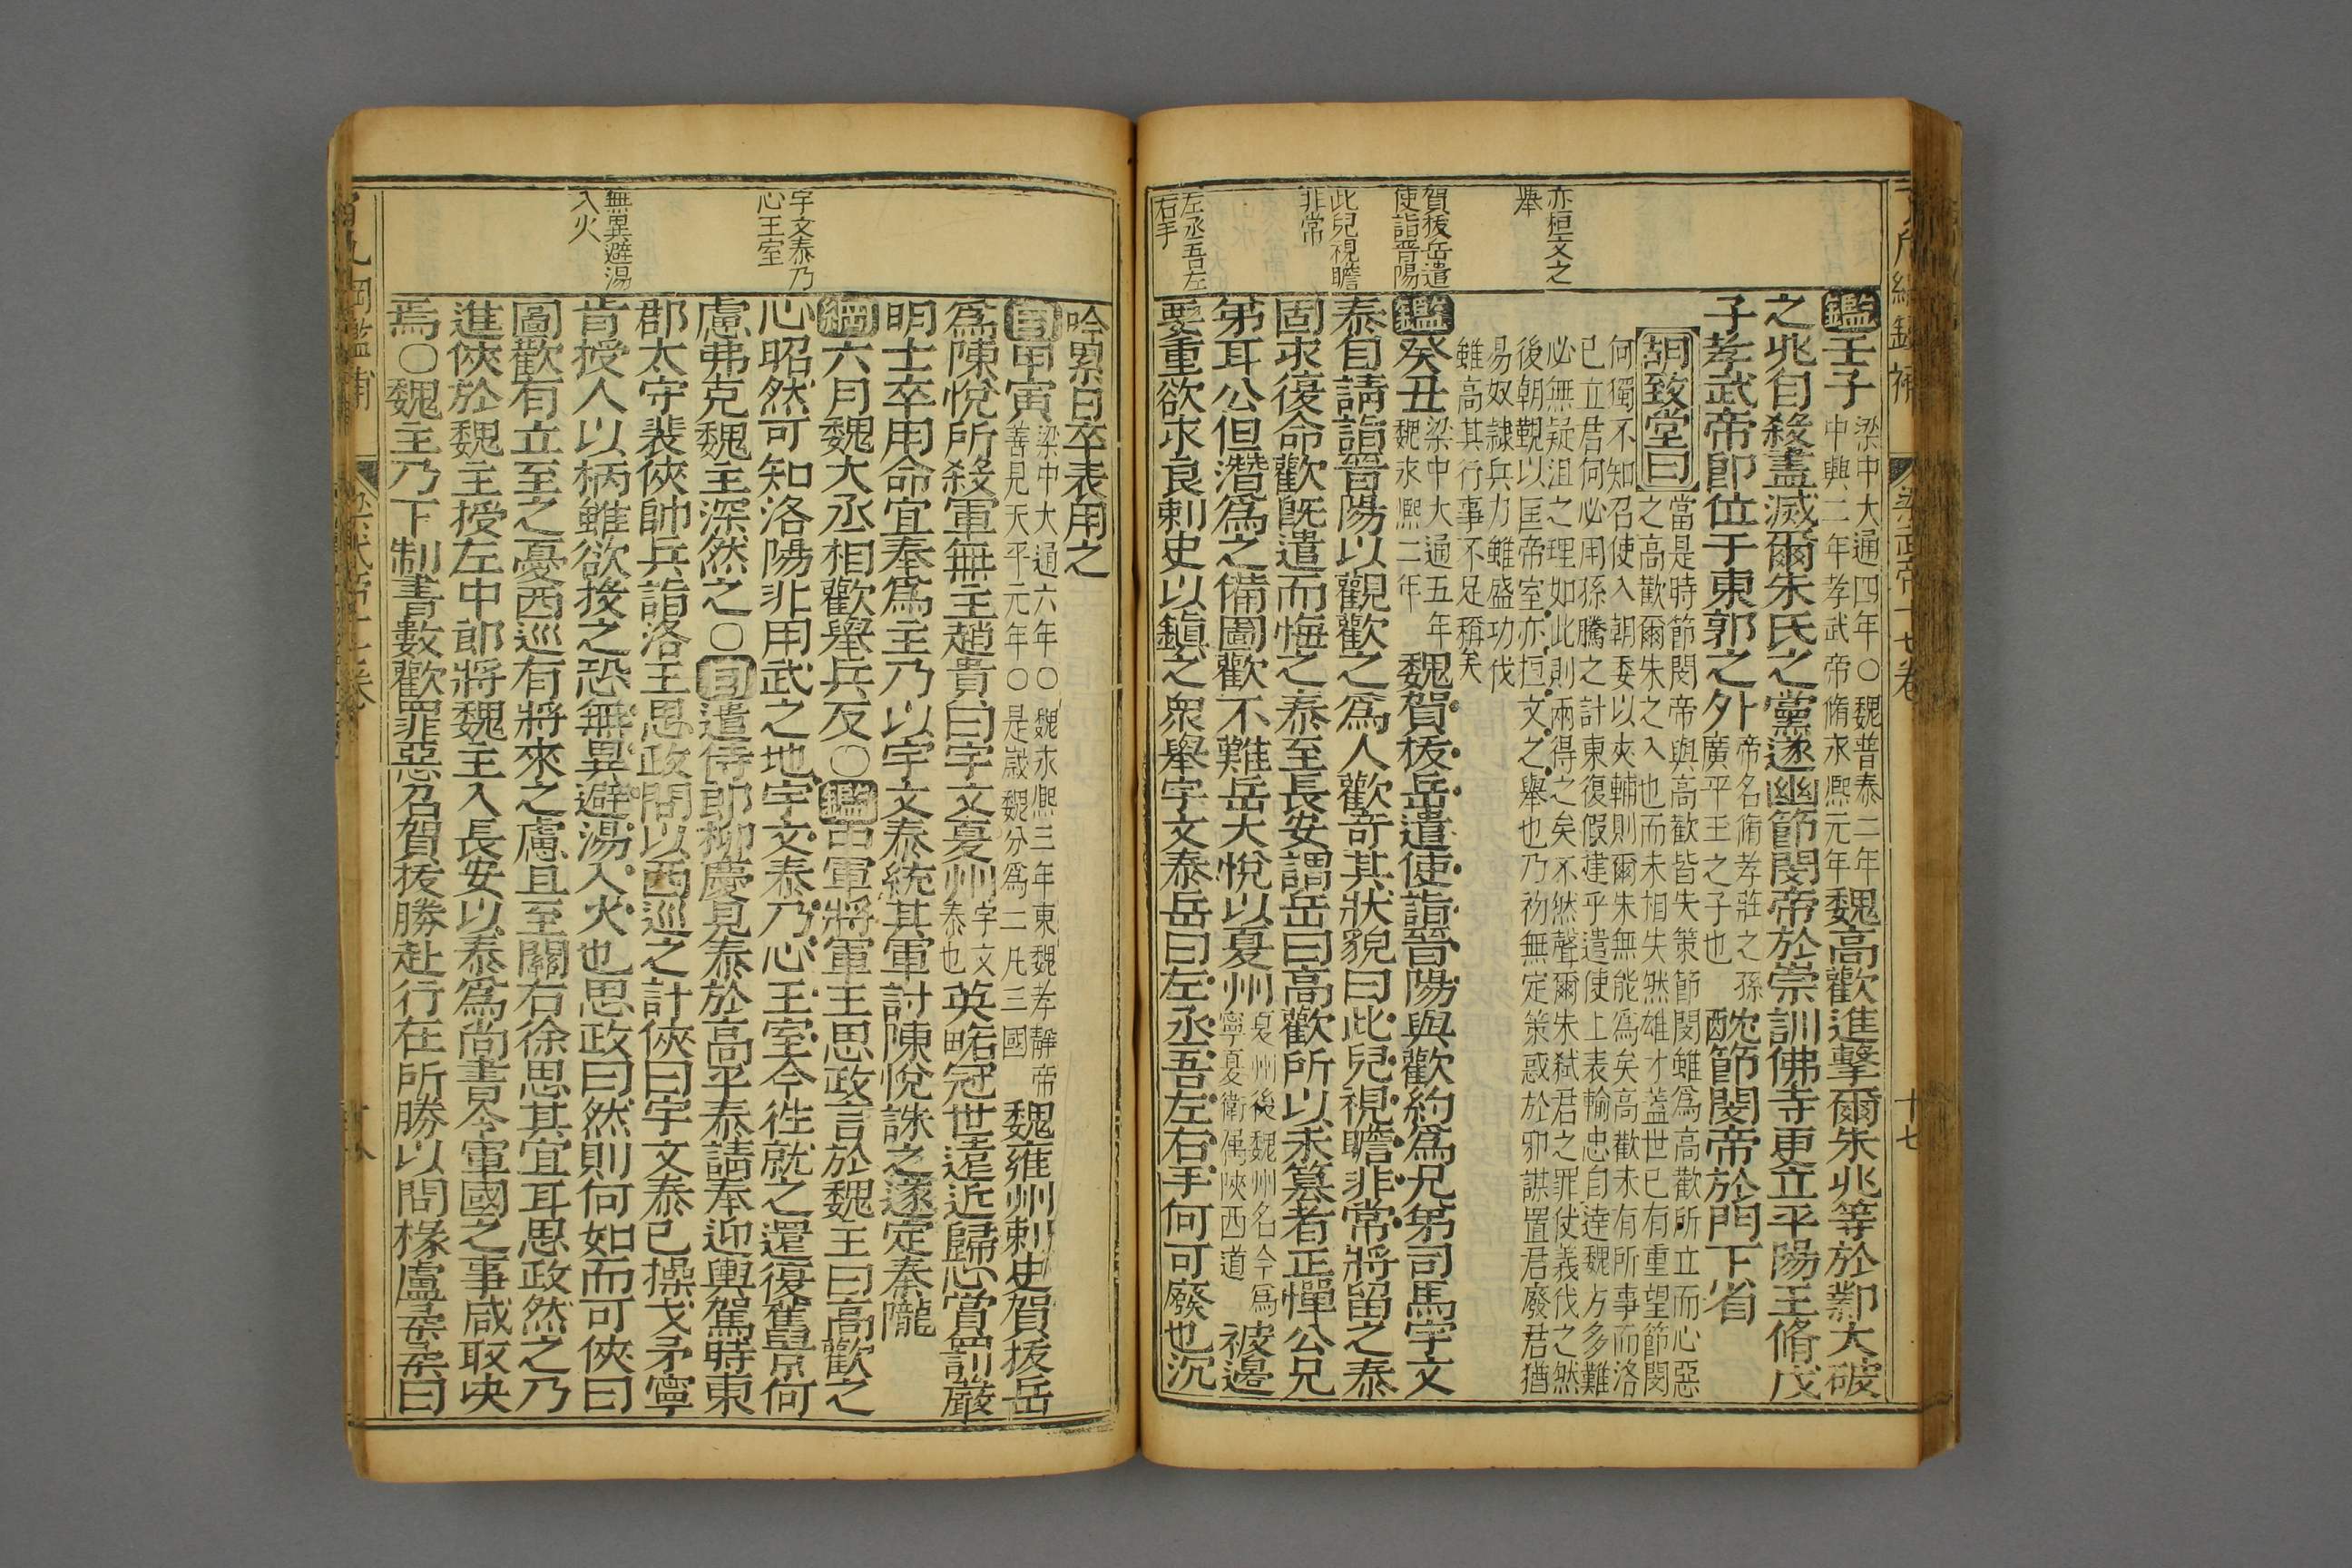 亦桓文之
舉
賀拔岳遣
使詣晉陽
此兒視瞻
非常
左丞吾左
右手
鑑壬子梁中大通四年○魏普泰二年中興二年孝武帝脩永熈元年魏高歡進擊爾朱兆等於鄴大破
之兆自殺盡滅爾朱氏之黨遂幽節閔帝於崇訓佛寺更立平陽王脩戊
子孝武帝即位于東郭之外帝名脩孝莊之孫廣平王之子也酖節閔帝於門下省
胡致堂曰當是時節閔帝與高歡皆失策節閔雖為高歡所立而心惡
之高歡爾朱之入也而未相失然雄才蓋世已有重望節閔
何獨不知召使入朝委以夾輔則爾朱無能為矣高歡未有所事而洛
已立君何必用孫騰之計東復假建乎遣使上表輸忠自達魏方多難
必無疑沮之理如此則兩得之矣不然聲爾朱弒君之罪仗義伐之然
後朝覲以匡帝室亦桓文之舉也乃礿無定策惑於邪謀置君廢君猶
易奴隷兵力雖盛功伐
雖高其行事不足稱矣
鑑癸丑梁中大通五年魏永熈二年魏賀拔岳遣使詣晉陽與歡約為兄弟司馬宇文
泰自請詣晉陽以觀歡之為人歡奇其狀貌曰此兒視瞻非常將留之泰
固求復命歡既遣而悔之泰至長安謂岳曰高歡所以未篡者正憚公兄
弟耳公但潛為之備圖歡不難岳大悅以夏州夏州後魏州名今為寧夏衛偶陜西道被邊
要重欲求良刺史以鎮之衆舉宇文泰岳曰左丞吾左右手何可廢也沉
十七
宇文泰乃
心王室
無異避湯
入火
吟累日卒表用之
目甲寅梁中大通六年○魏永熈三年東魏孝靜帝善見天平元年○是嵗魏分為二凡三國魏雍州刺史賀拔岳
為陳悅所殺軍無主趙貴曰宇文夏州宇文泰也英略冠世遠近歸心賞罰嚴
明士卒用命宜奉為主乃以宇文泰統其軍討陳悅誅之遂定秦隴
綱六月魏大丞相歡舉兵反○鑑中軍將軍王思政言於魏主曰高歡之
心昭然可知洛陽非用武之地宇文泰乃心王室今徃就之還復舊京何
慮弗克魏主深然之○目遣侍郎柳慶見泰於高平泰請奉迎輿駕時東
郡太守裴俠帥兵詣洛王思政問以西巡之計俠曰宇文泰已操戈矛寧
肯授人以柄雖欲投之恐無異避湯入火也思政曰然則何如而可俠曰
圖歡有立至之憂西巡有將來之慮且至關右徐思其宜耳思政然之乃
進俠於魏主授左中郎將魏主入長安以泰為尚書令軍國之事咸取決
焉○魏主乃下制書數歡罪惡召賀拔勝赴行在所勝以問椽盧柔柔曰